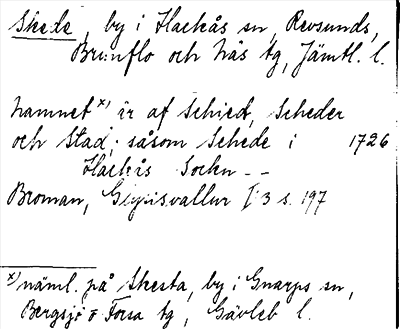 Skede, by i Hackås sn, Revsunds,
Brunflo och Näs tg, Jämtl. l.
Namnet x) är af Schiedt, Scheder
och Stad; såsom Schede i 1726
Hackås Sockn --
Broman, Glysisvallur I:3 s. 197
x) näml. på Skesta, by i Gnarps sn,
Bergsjö o Forsa tg, Gävleb l.